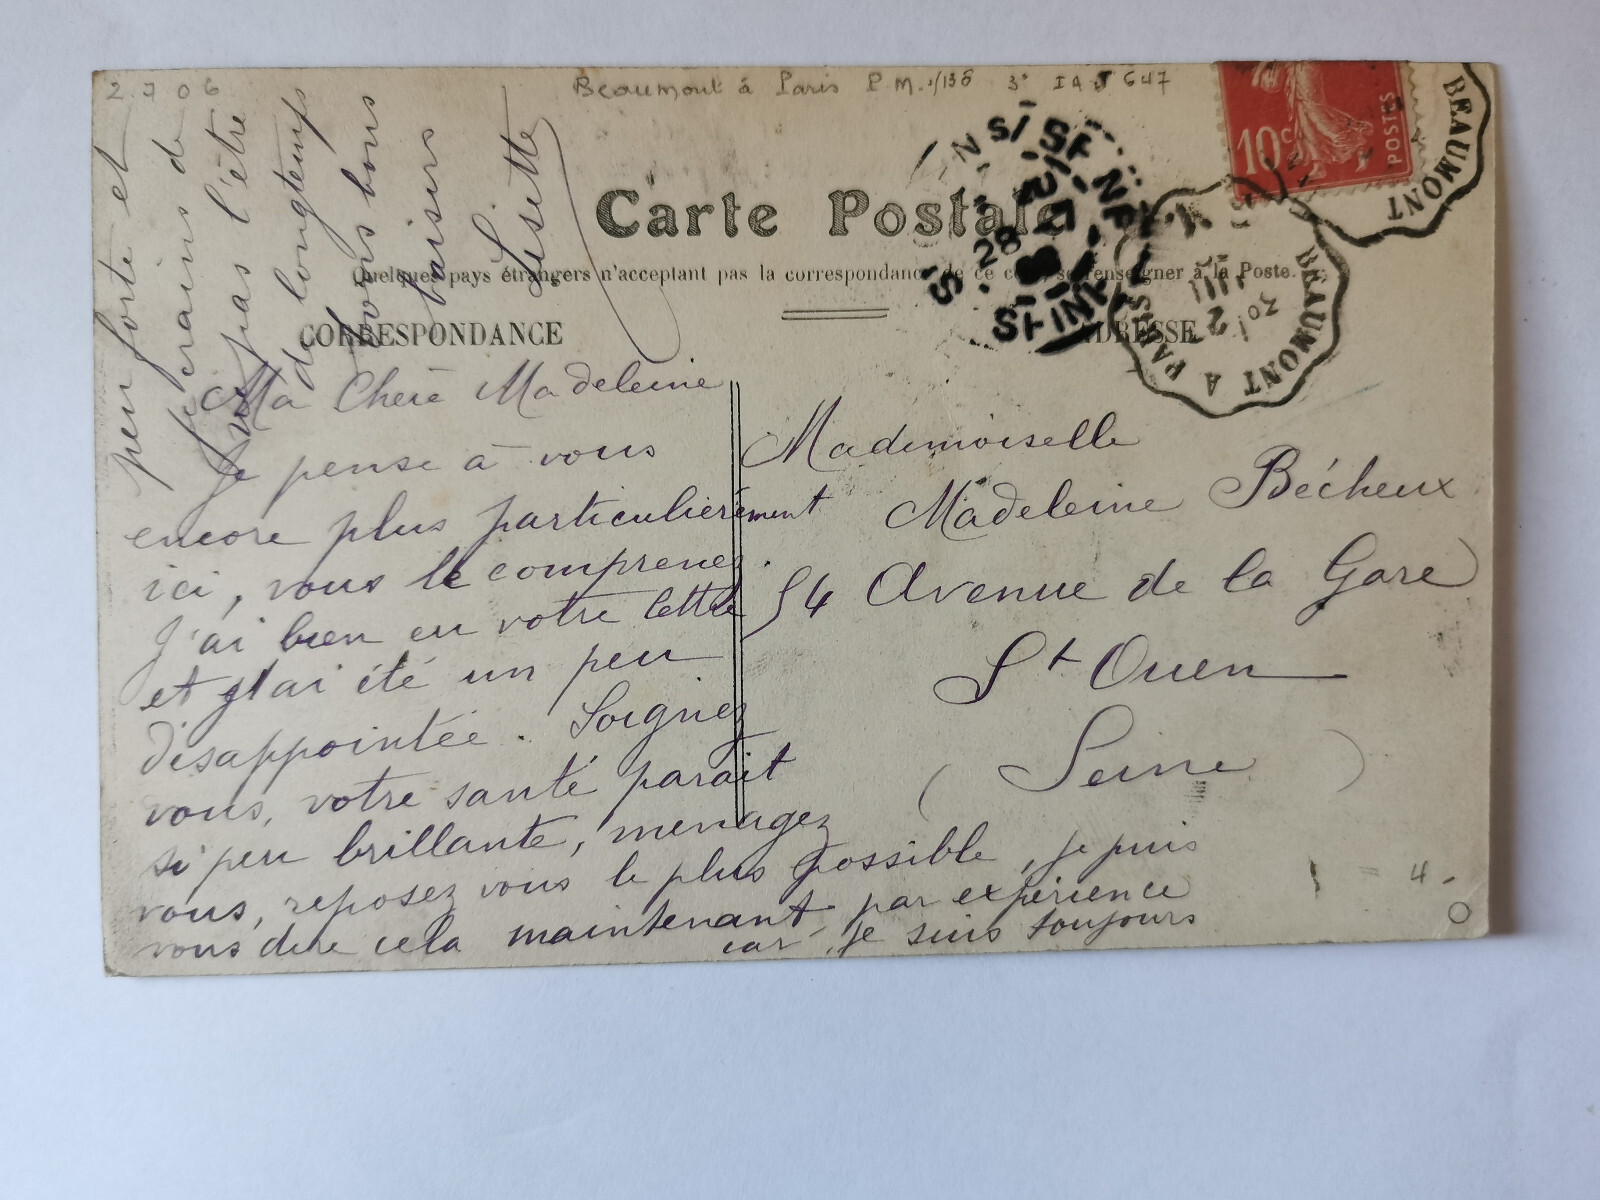 2 7 06
Beaumont à Paris P.M. 3° IA J 647
10c
POSTES
BEAUMONT
BEAUMONT A PARIS
28
Carte Postale
Quelques pays étrangers n'acceptant pas la correspondance de ce côté, se renseigner à la Poste.
CORRESPONDANCE
ADRESSE
Ma Chère Madeleine
Je pense à vous
encore plus particulièrement
ici, vous le comprenez.
J'ai bien eu votre lettre
et j'ai été un peu
disappointée. Soignez
vous, votre santé parait
si peu brillante, menagez
vous, reposez vous le plus possible, je puis
vous dire cela maintenant par expérience
car je suis toujours
peu forte et
je crains de
ne pas l'être
de longtemps
bons bons
baisers
Lisette
Mademoiselle
Madeleine Bécheux
54 Avenue de la Gare
St Ouen
(Seine)
4.